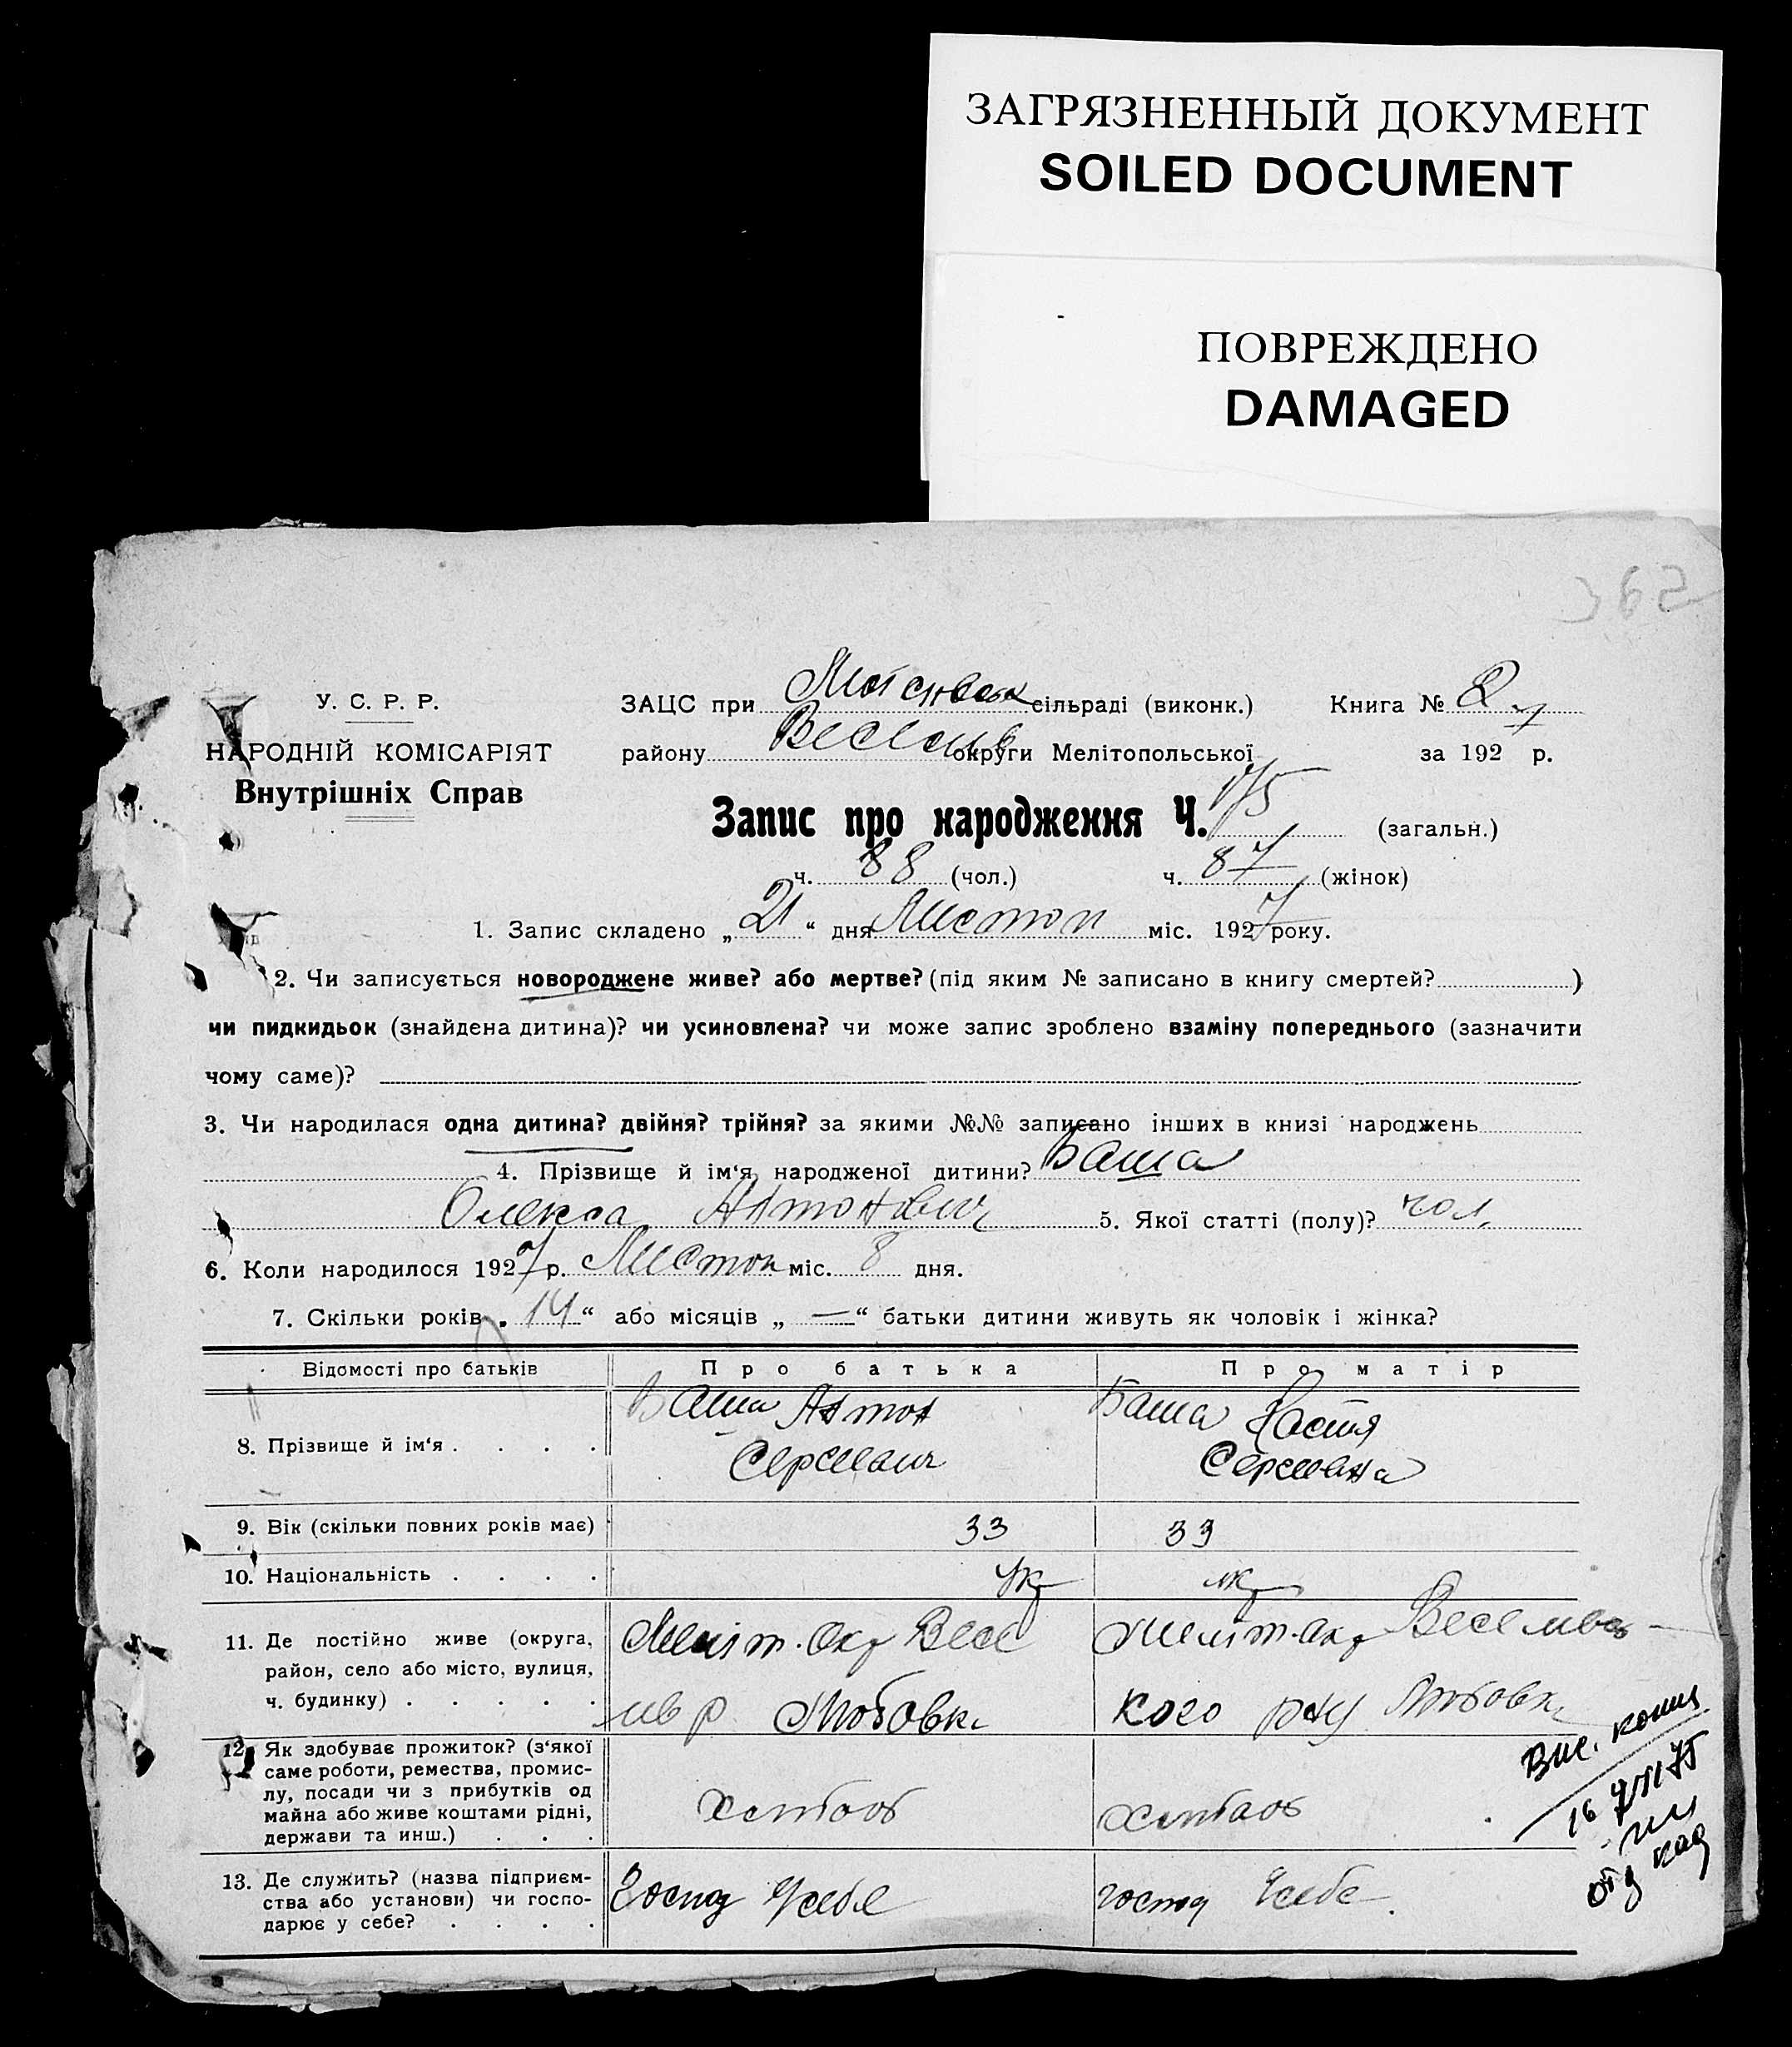 ЗАГРЯЗНЕННЫЙ ДОКУМЕНТ
SOILED DOCUMENT
ПОВРЕЖДЕНО
DAMAGED
362
У. С. Р. Р.
НАРОДНІЙ КОМІСАРІЯТ
Внутрішніх Справ
ЗАЦС при сільраді (виконк.) Книга № 2
району Весел округи Мелітопольської за 1927 р.
Запис про народження Ч. 175 (загальн.)
ч. 88 (чол.) ч. 87 (жінок)
1. Запис складено „ 21 “ дня Листоп міс. 1927 року.
2. Чи записується новороджене живе? або мертве? (під яким № записано в книгу смертей? )
чи пидкидьок (знайдена дитина)? чи усиновлена? чи може запис зроблено взаміну попереднього (зазначити
чому саме)?
3. Чи народилася одна дитина? двійня? трійня? за якими №№ записано інших в книзі народжень
4. Прізвище й ім‘я народженої дитини? Баша
Олекса Антонович 5. Якої статті (полу)? чол.
6. Коли народилося 1927 р. Листоп міс. 8 дня.
7. Скільки років „ 14 “ або місяців „ — “ батьки дитини живуть як чоловік і жінка?
Відомості про батьків Про батька Про матір
8. Прізвище й ім‘я . . . . Баша Антон Баша Настя
9. Вік (скільки повних років має) 33 33
10. Національність . . . . Укр укр
11. Де постійно живе (округа, район, село або місто, вулиця, ч. будинку) . . . . .
Меліт. Окр Весе
лів р Любовка
Меліт. Окр Веселівсь
кого р-ну Любовка
12. Як здобуває прожиток? (з‘якої саме роботи, ремества, промислу, посади чи з прибутків од майна або живе коштами рідні, держави та инш.) . . .
Хлібороб Хлібороб
13. Де служить? (назва підприємства або установи) чи господарює у себе? . . . .
Господ Усебе господ Усебе